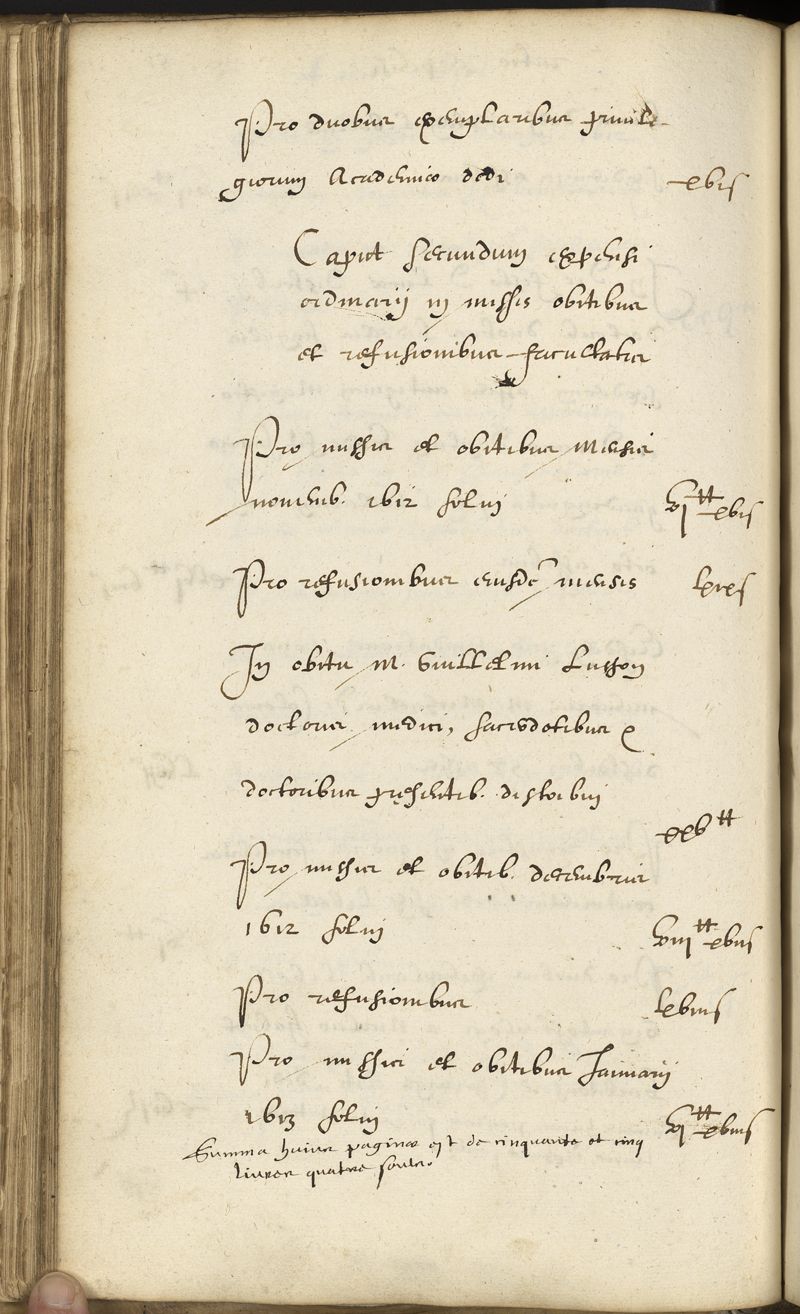 Pro duobus exemplaribus privile-
giorum Academico dedi xvi s
Caput secundum expensi
ordinarii in missis obitibus
et refusionibus facultatis
Pro missis et obitibus mensis
novemb. 1612 solvi vi tt xvi s
Pro refusionibus eiusdē mensis lxix s
In obitu M. Guillelmi Lusson
doctoris medici, sacerdotibus &
doctoribus presentib. distribui
xxv tt
Pro missis et obitib. decembris
1612 solvi viii tt xvii s
Pro refusionibus lxviii s
Pro missis et obitibus Januarii
1613 solvi vi tt xviii s
Summa huius paginæ est de cinquante et cinq
livres quatre soulz.